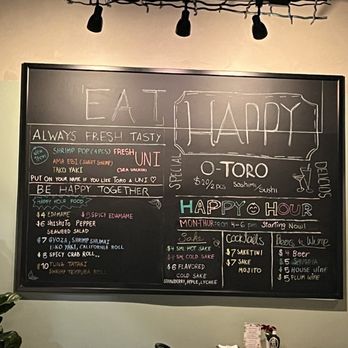 EAT
ALWAYS FRESH TASTY
SHRIMP POP (4PCS)
AMA EBI (SWEET SHRIMP)
TAKO YAKI
FRESH UNI
PUT ON YOUR NAME IF YOU LIKE TORO & UNI
BE HAPPY TOGETHER
HAPPY HOUR FOOD
$4 EDAMAME
$5 SPICY EDAMAME
$6 SHISHITO PEPPER
SEAWEED SALAD
$7 GYOZA, SHRIMP SHUMAI
CALIFORNIA ROLL
$8 SPICY CRAB ROLL
$10 TUNA TATAKI
SHRIMP TEMPURA ROLL
HAPPY
SPECIAL
O-TORO
$20/2pcs Sashimi Sushi
DELICIOUS
HAPPY HOUR
MON-THUR 4-6 pm Starting Now!
Sake
$4 SM. HOT SAKE
SM. COLD SAKE
$8 FLAVORED
COLD SAKE
STRAWBERRY, APPLE, LYCHEE
COCKTAILS
$7 SAKETINI
$7 SAKE
MOJITO
Beers & Wine
$4 Beer
$5 HOUSE WINE
$5 PLUM WINE